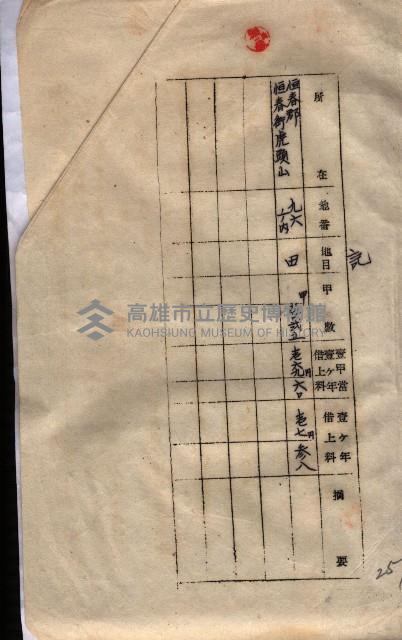 記
所在
地番
地目
甲數
壹甲當
壹ヶ年
借上料
壹ヶ年
借上料
摘要
恒春郡
恒春街虎頭山
九六
ノ內
田
甲
円
円
高雄市立歷史博物館
KAOHSIUNG MUSEUM OF HISTORY
25